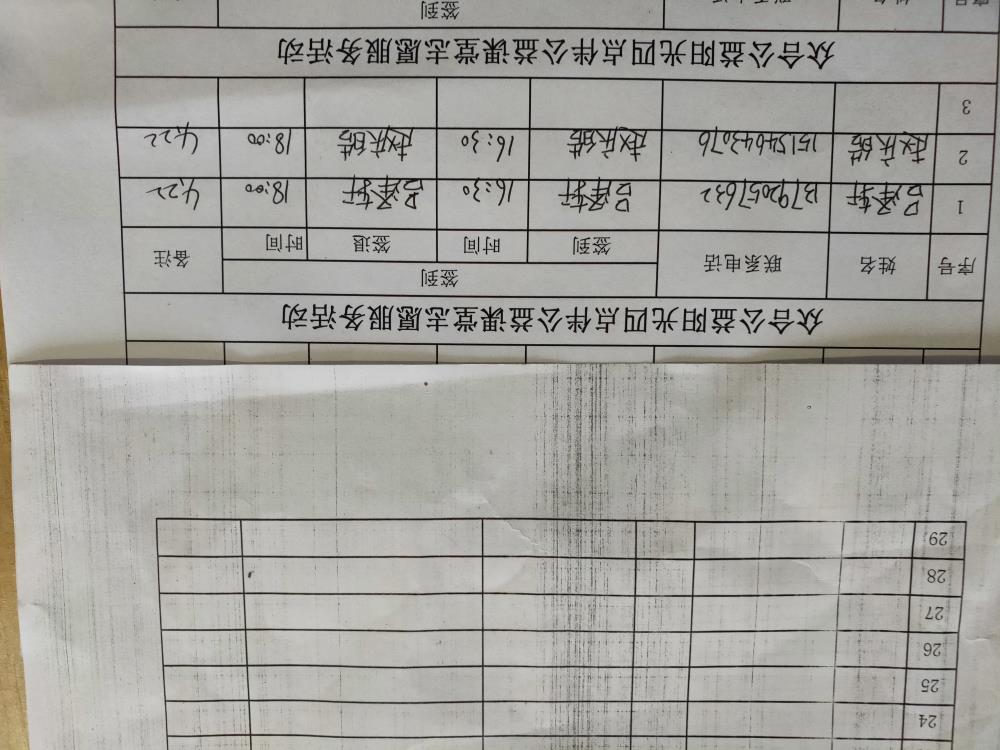 24
25
26
27
28
29
众合公益阳光四点伴公益课堂志愿服务活动
签到
序号 姓名 联系电话 签到 时间 签退 时间 备注
1 吕泽轩 13792057632 吕泽轩 16:30 吕泽轩 18:00 4.22
2 16:30 18:00 4.22
3
众合公益阳光四点伴公益课堂志愿服务活动
签到